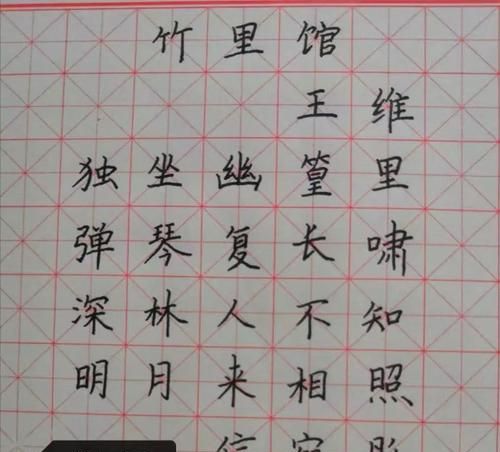 竹里馆
王维
独坐幽篁里
弹琴复长啸
深林人不知
明月来相照